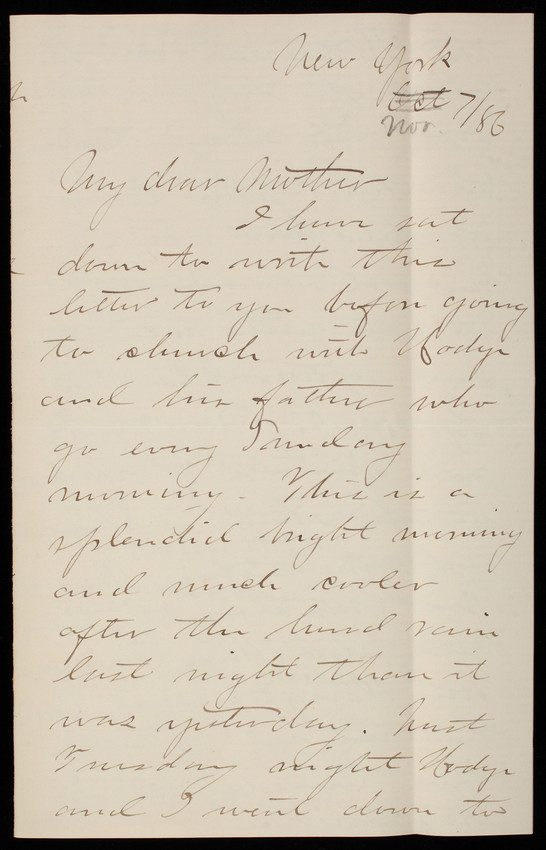 New York
Oct 7/86
Nov.
My dear Mother
I have sat
down to write this
letter to you before going
to church with Hodge
and his father who
go every Sunday
morning. This is a
splendid bright morning
and much cooler
after the hard rain
last night than it
was yesterday. Last
Tuesday night Hodge
and I went down to